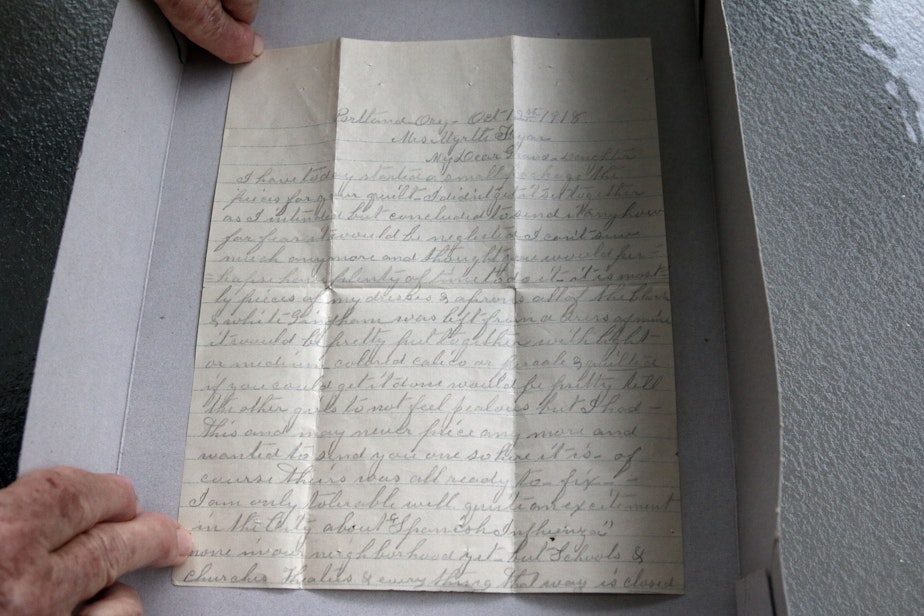 Portland Org - Oct 13th 1918
Mrs Myrtle
My Dear Grand-daughter
I have today started a small package the
pieces for your quilt - I didn't get it set together
as I intended but concluded to send it anyhow
for fear it would be neglected I can't sew
much any more and thought you would per-
haps have plenty of time to do it - it is most-
ly pieces of my dresses & aprons all of the blue
& white Gingham was left from a dress of mine
it would be pretty put together with light
or medium colored calico or percale & quilted
if you could get it done would be pretty tell
the other girls to not feel jealous but I had -
this and may never piece any more and
wanted to send you one so here it is - of
course theirs was all ready to - fix -
I am only tolerable well quite an excitement
in the City about "Spanish Influenza"
none in our neighborhood yet - but Schools &
churches Theatres & every thing that way is closed